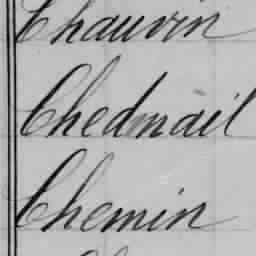 Chauvin
Chedmail
Chemin